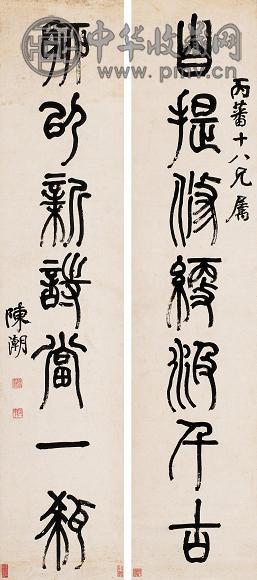 中华收藏网
www.pmv.cn
丙蕃十八兄屬
自提修綆汲千古
新詩當一
陳潮